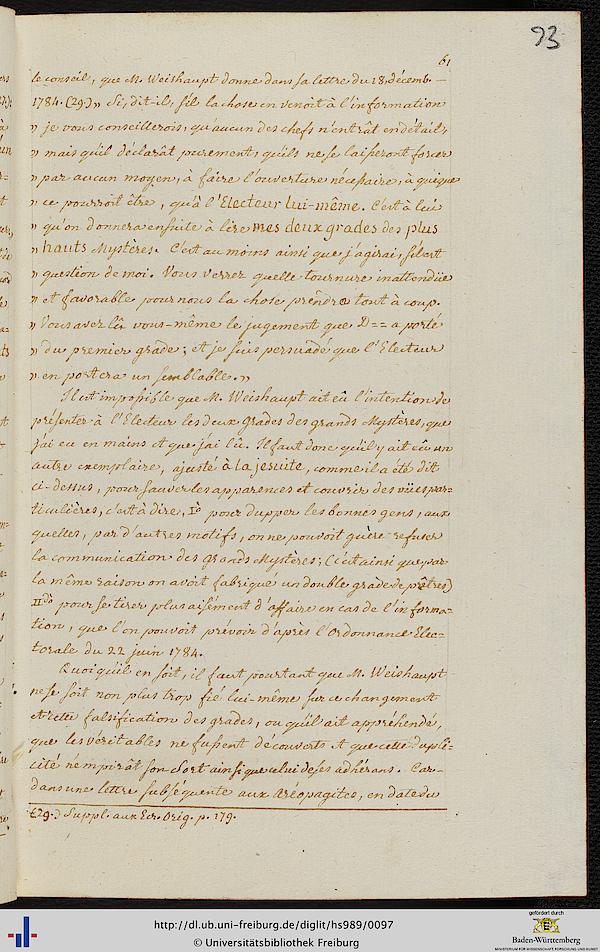 93
61
le conseil, que M. Weishaupt donne dans sa lettre du 18. décemb. —
1784. (29.) „ Si, dit-il, s'il la chose en venoit à l'information
„ je vous conseillerois, qu'aucun des chefs n'entrât en détail,
„ mais qu'il déclarât purement, qu'ils ne se laisseront forcer
„ par aucun moyen, à faire l'ouverture nécessaire, à quique
„ ce pourroit être, qu'à l'Electeur lui-même. C'est à lui
„ qu'on donnera ensuite à lire mes deux grades des plus
„ hauts Mystères. C'est au moins ainsi que j'agirai, s'il est
„ question de moi. Vous verrez quelle tournure inattendüe
„ et favorable pour nous la chose prendra tout à coup.
„ Vous avez lû vous-même le jugement que D == a porté
„ du premier grade; et je suis persuadé que l'Electeur
„ en portera un semblable. „
Il est impossible que M. Weishaupt ait eû l'intention de
présenter à l'Electeur les deux grades des grands Mystères, que
j'ai eu en mains et que j'ai lû. Il faut donc qu'il y ait eû un
autre exemplaire, ajusté à la jesuite, comme il a été dit
ci-dessus, pour sauver les apparences et couvrir des vües par=
ticulières, c'est à dire, Iº pour dupper les bonnes gens, aux
quelles, par d'autres motifs, on ne pouvoit guère refuser
la communication des grands Mystères; (C'est ainsi que par
la même raison on avoit fabriqué un double grade de prêtres)
IIdo pour se tirer plus aisément d'affaire en cas de l'informa=
tion, que l'on pouvoit prévoir d'après l'Ordonnance Elec=
torale du 22 juin 1784.
Quoi qu'il en soit, il faut pourtant que M. Weishaupt
ne se soit non plus trop fié lui-même sur ce changement
et cette falsification des grades, ou qu'il ait appréhendé,
que les véritables ne fussent découverts et que cette dupli=
cité n'empirât son sort ainsi que celui de ses adhérans. Car
dans une lettre subséquente aux Aréopagites, en date du
(29.) Suppl. aux Ecr. Orig. p. 179.
http://dl.ub.uni-freiburg.de/diglit/hs989/0097
© Universitätsbibliothek Freiburg
gefördert durch
Baden-Württemberg
MINISTERIUM FÜR WISSENSCHAFT, FORSCHUNG UND KUNST